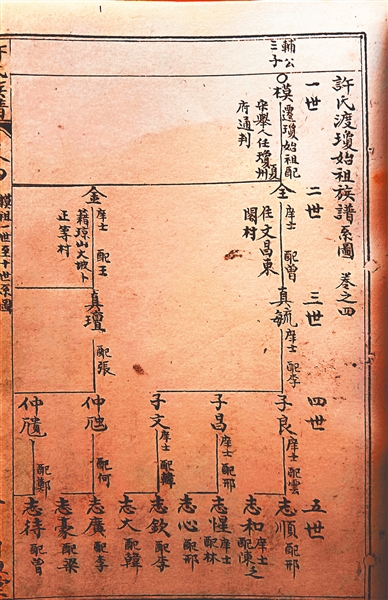 許氏渡瓊始祖族譜系圖 卷之四
一世
二世
三世
四世
五世
輔公
三子
模
遷瓊始祖配夏
宋舉人任瓊州
府通判
全
庠士 配曾
住文昌東
閣村
金
庠士 配王
籍瓊山大坡卜
正等村
真毓
庠士 配李
真瓊
配張
子良
庠士 配雲
子昌
庠士 配邢
子文
庠士 配韓
仲
配何
仲
配鄭
志順
配邢
志和
庠士
配陳之
志惺
庠士
配林
志心
配邢
志欽
配李
志大
配韓
志廣
配李
志豪
配梁
志待
配曾
模祖一世至十世系圖